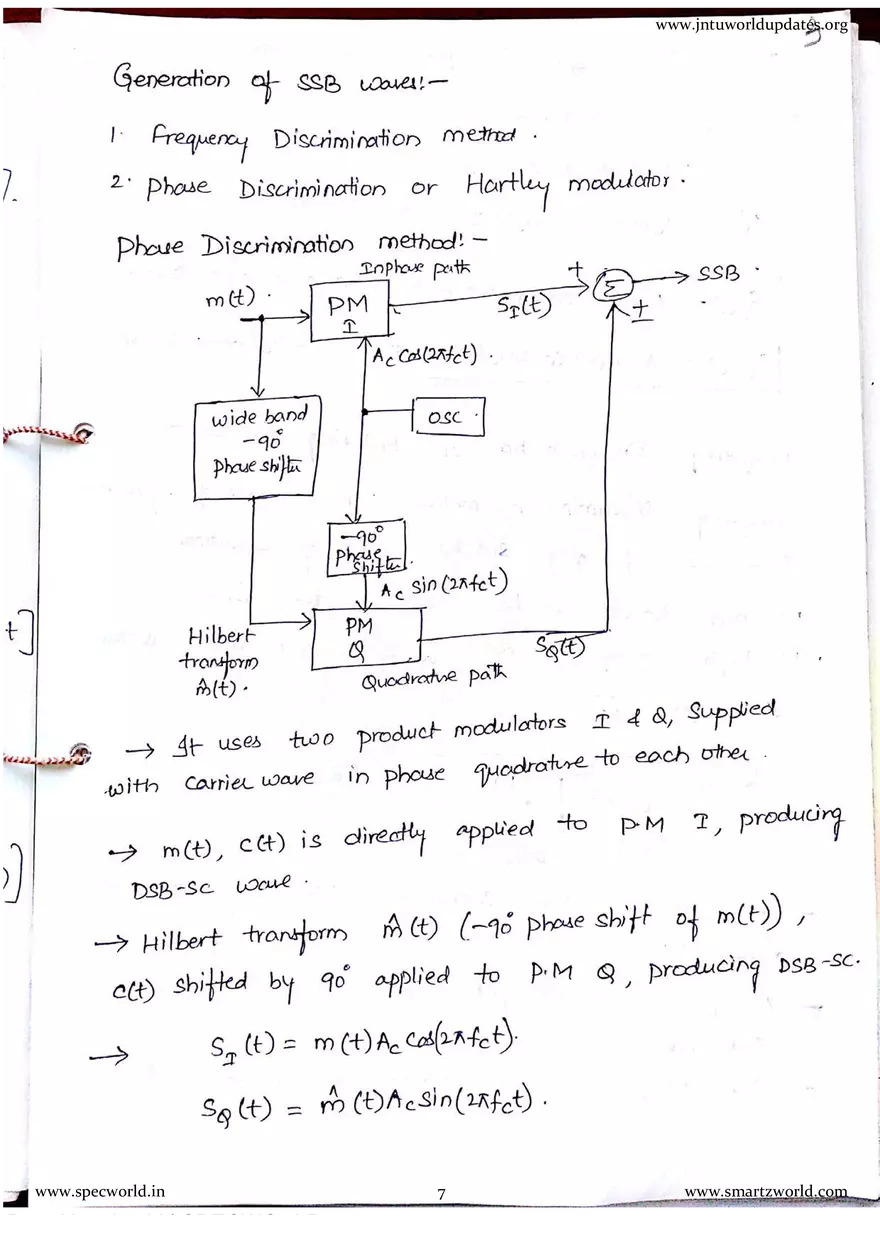 www.jntuworldupdates.org
Generation of SSB waves:-
1. Frequency Discrimination method.
7.
2. Phase Discrimination or Hartley modulator.
Phase Discrimination method:-
Inphase path
+
SSB
m(t)
PM
I
SI(t)
Σ
±
Ac Cos(2πfct)
wide band
-90°
phase shifter
OSC
-90°
Phase
Shifter
Ac sin(2πfct)
t]
Hilbert
transform
m̂(t).
PM
Q
SQ(t)
Quadrature path
→ It uses two product modulators I & Q, Supplied
with Carrier wave in phase quadrature to each other.
→ m(t), c(t) is directly applied to P.M I, producing
DSB-SC wave.
→ Hilbert transform m̂(t) (-90° phase shift of m(t)),
c(t) shifted by 90° applied to P.M Q, producing DSB-SC.
→ SI(t) = m(t)Ac Cos(2πfct).
SQ(t) = m̂(t)Ac sin(2πfct).
www.specworld.in
7
www.smartzworld.com